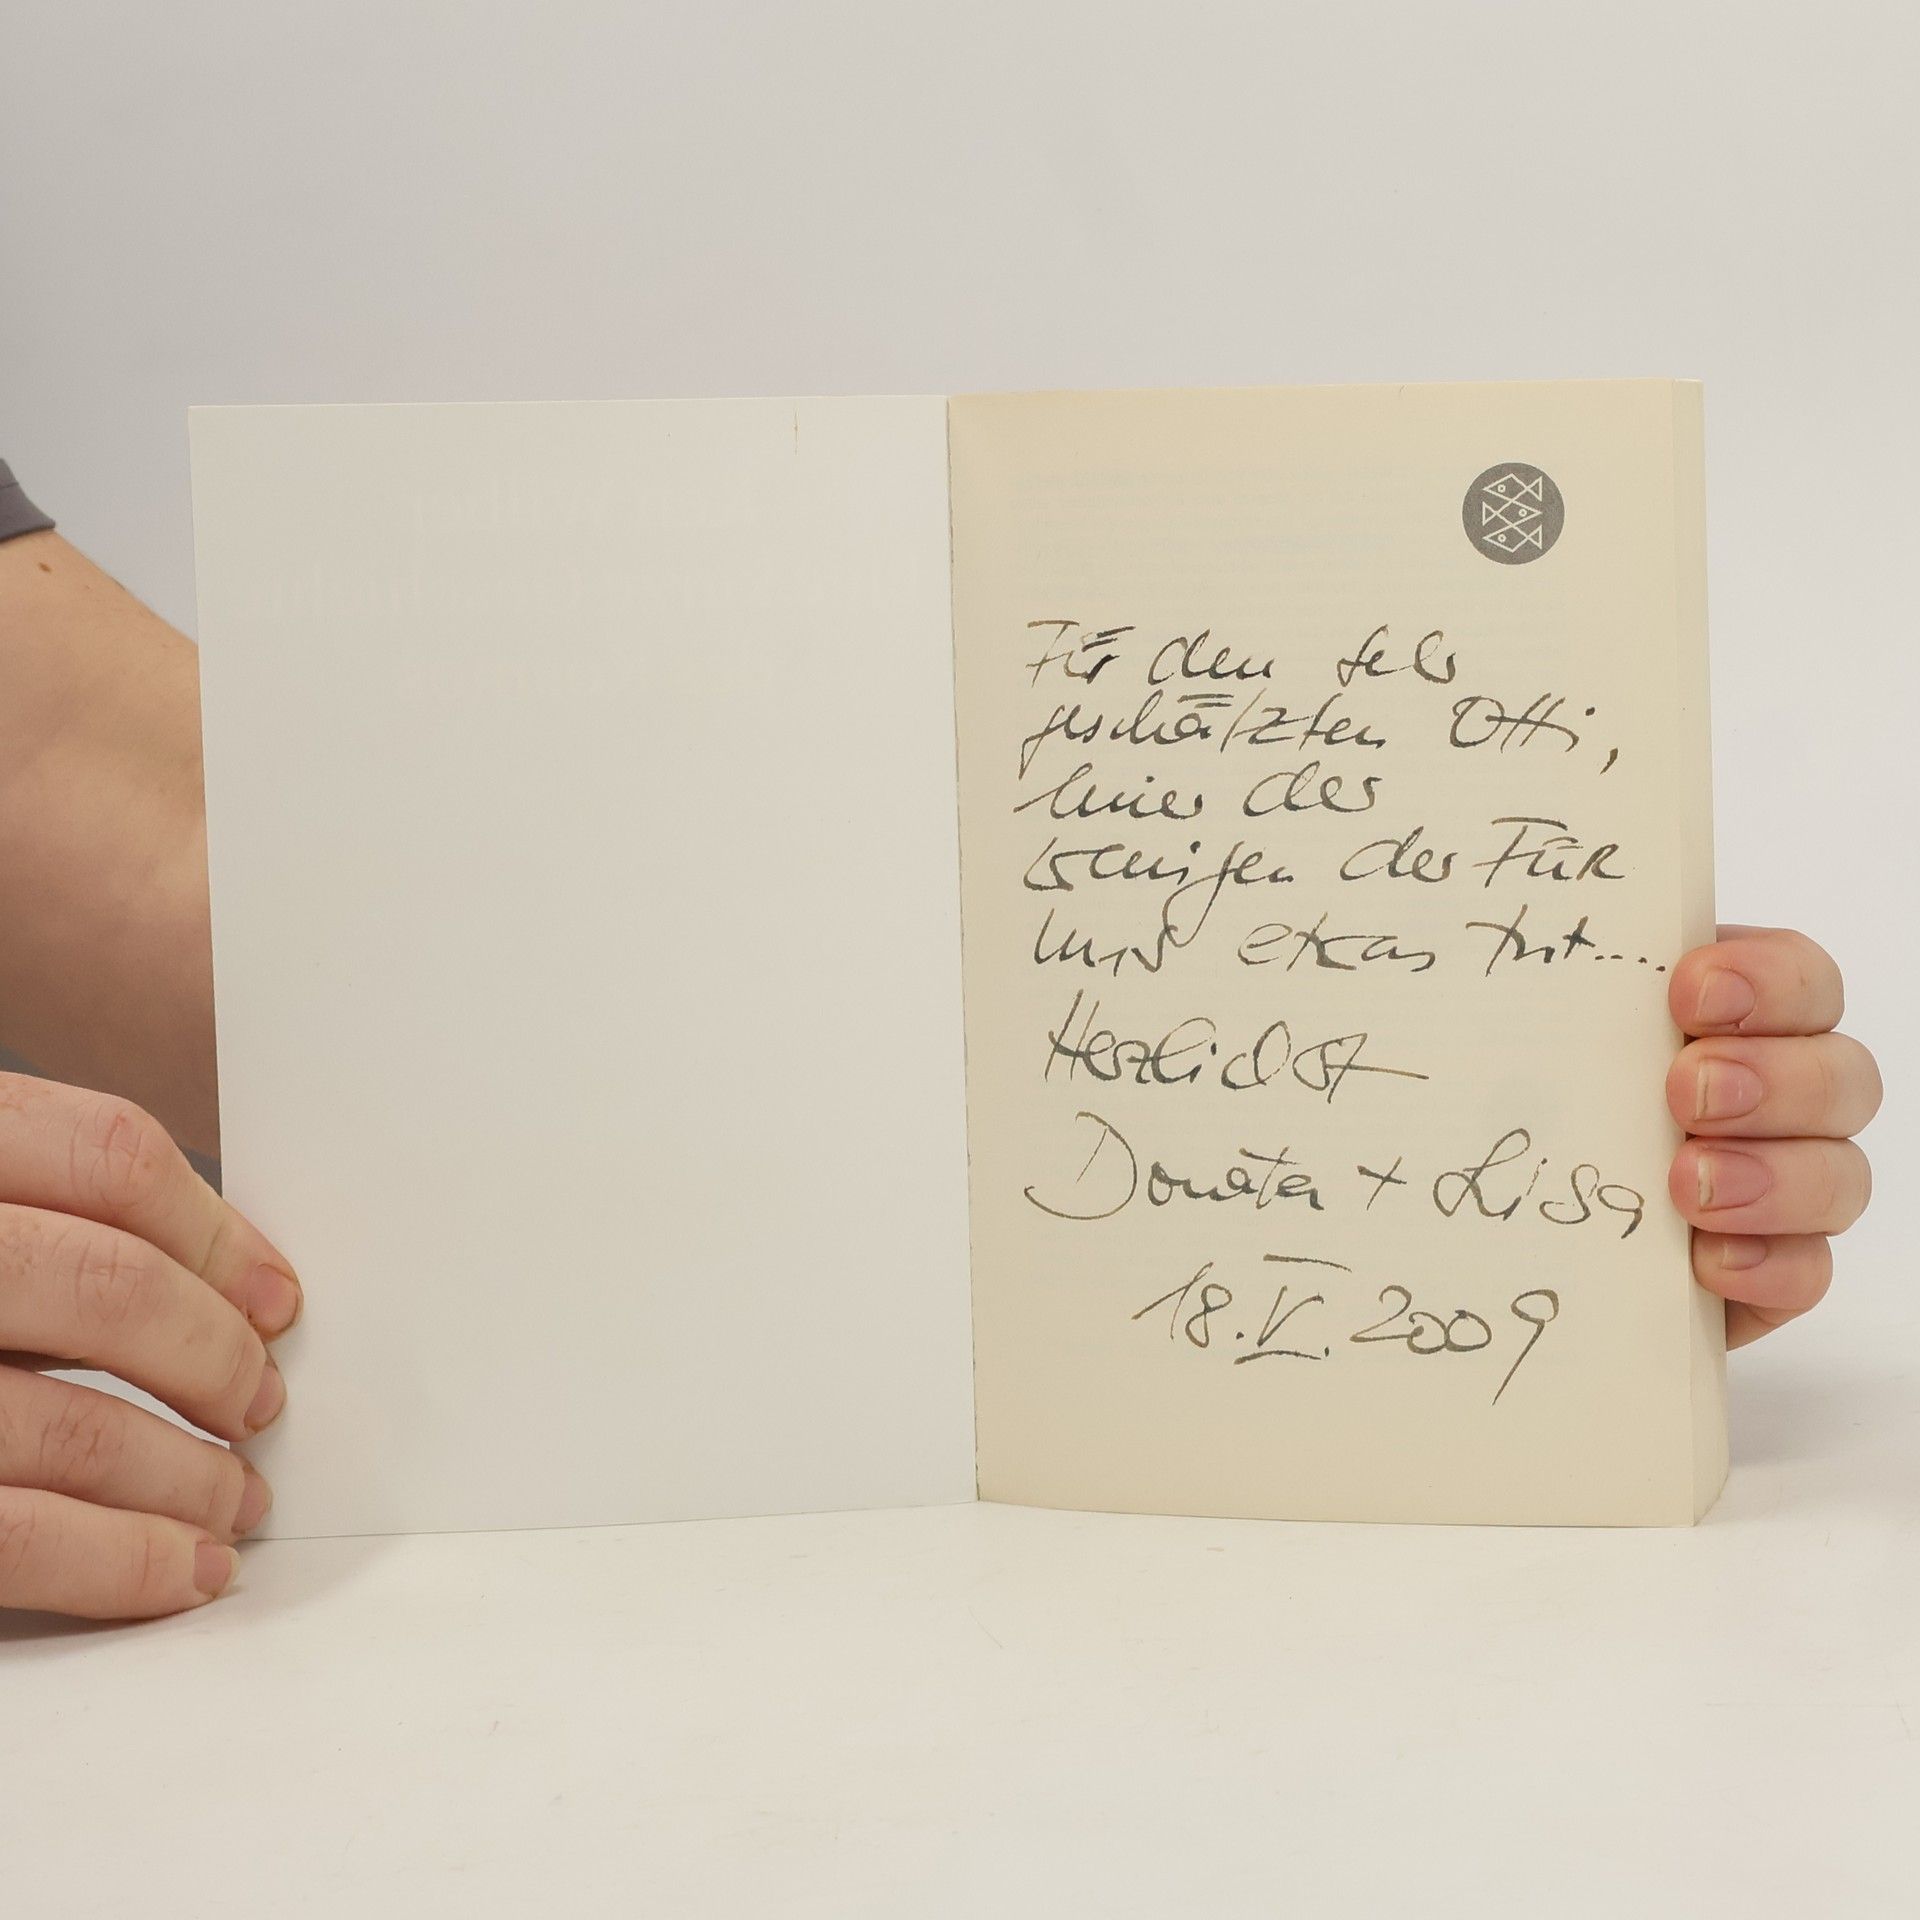 Für den sehr
geschätzten Otti,
einer der
wenigen der FÜR
uns etwas tut....
Herzlichst
Donata + Lisa
18. V. 2009